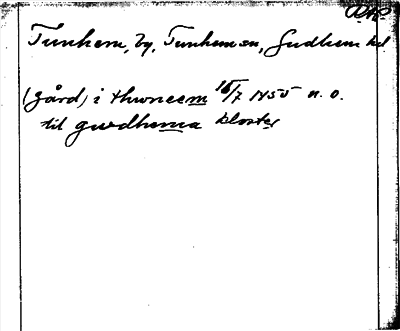 Tunhem, by, Tunhem sn, Gudhem hd
(gård) i thwneem 16/7 1455 n. o.
til gwdhema kloster